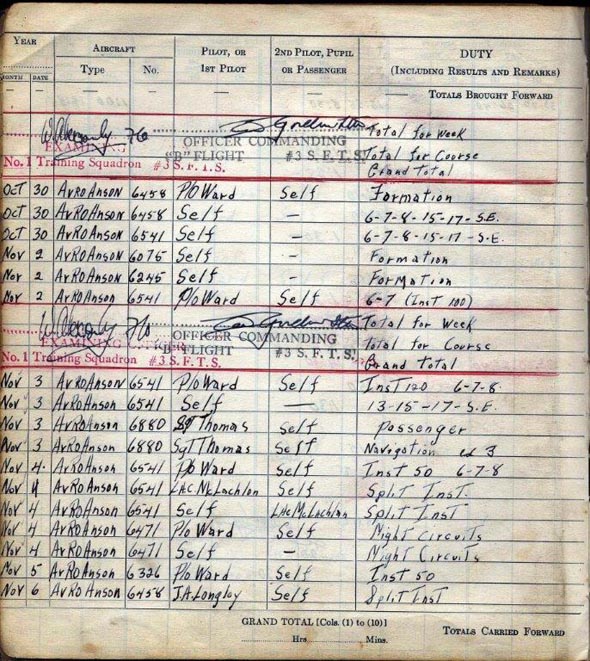 YEAR AIRCRAFT PILOT, OR 1ST PILOT 2ND PILOT, PUPIL OR PASSENGER DUTY (INCLUDING RESULTS AND REMARKS)
MONTH DATE Type No.
— — — — — — TOTALS BROUGHT FORWARD
Total for Week
OFFICER COMMANDING
No. 1 Training Squadron #3 S.F.T.S. "B" FLIGHT #3 S.F.T.S. Total for Course
Grand Total
Oct 30 Avro Anson 6458 P/O Ward Self Formation
Oct 30 Avro Anson 6458 Self — 6-7-8-15-17-S.E.
Oct 30 Avro Anson 6541 Self — 6-7-8-15-17-S.E.
Nov 2 Avro Anson 6075 Self — Formation
Nov 2 Avro Anson 6245 Self — Formation
Nov 2 Avro Anson 6541 P/O Ward Self 6-7 (Inst 100)
Total for Week
EXAMINING OFFICER COMMANDING Total for Course
No. 1 Training Squadron #3 S.F.T.S. "B" FLIGHT #3 S.F.T.S. Grand Total
Nov 3 Avro Anson 6541 P/O Ward Self Inst 120 6-7-8.
Nov 3 Avro Anson 6541 Self — 13-15-17-S.E.
Nov 3 Avro Anson 6880 Sgt Thomas Self Passenger
Nov 3 Avro Anson 6880 Sgt Thomas Self Navigation 3
Nov 4 Avro Anson 6541 P/O Ward Self Inst 50 6-7-8
Nov 4 Avro Anson 6541 LAC. McLachlon Self Split Inst.
Nov 4 Avro Anson 6541 Self LAC McLachlon Split Inst
Nov 4 Avro Anson 6471 P/o Ward Self Night Circuits
Nov 4 Avro Anson 6471 Self — Night Circuits
Nov 5 Avro Anson 6326 P/o Ward Self Inst 50
Nov 6 Avro Anson 6458 J.A. Longley Self Split Inst
GRAND TOTAL [Cols. (1) to (10)]
Hrs. Mins. TOTALS CARRIED FORWARD